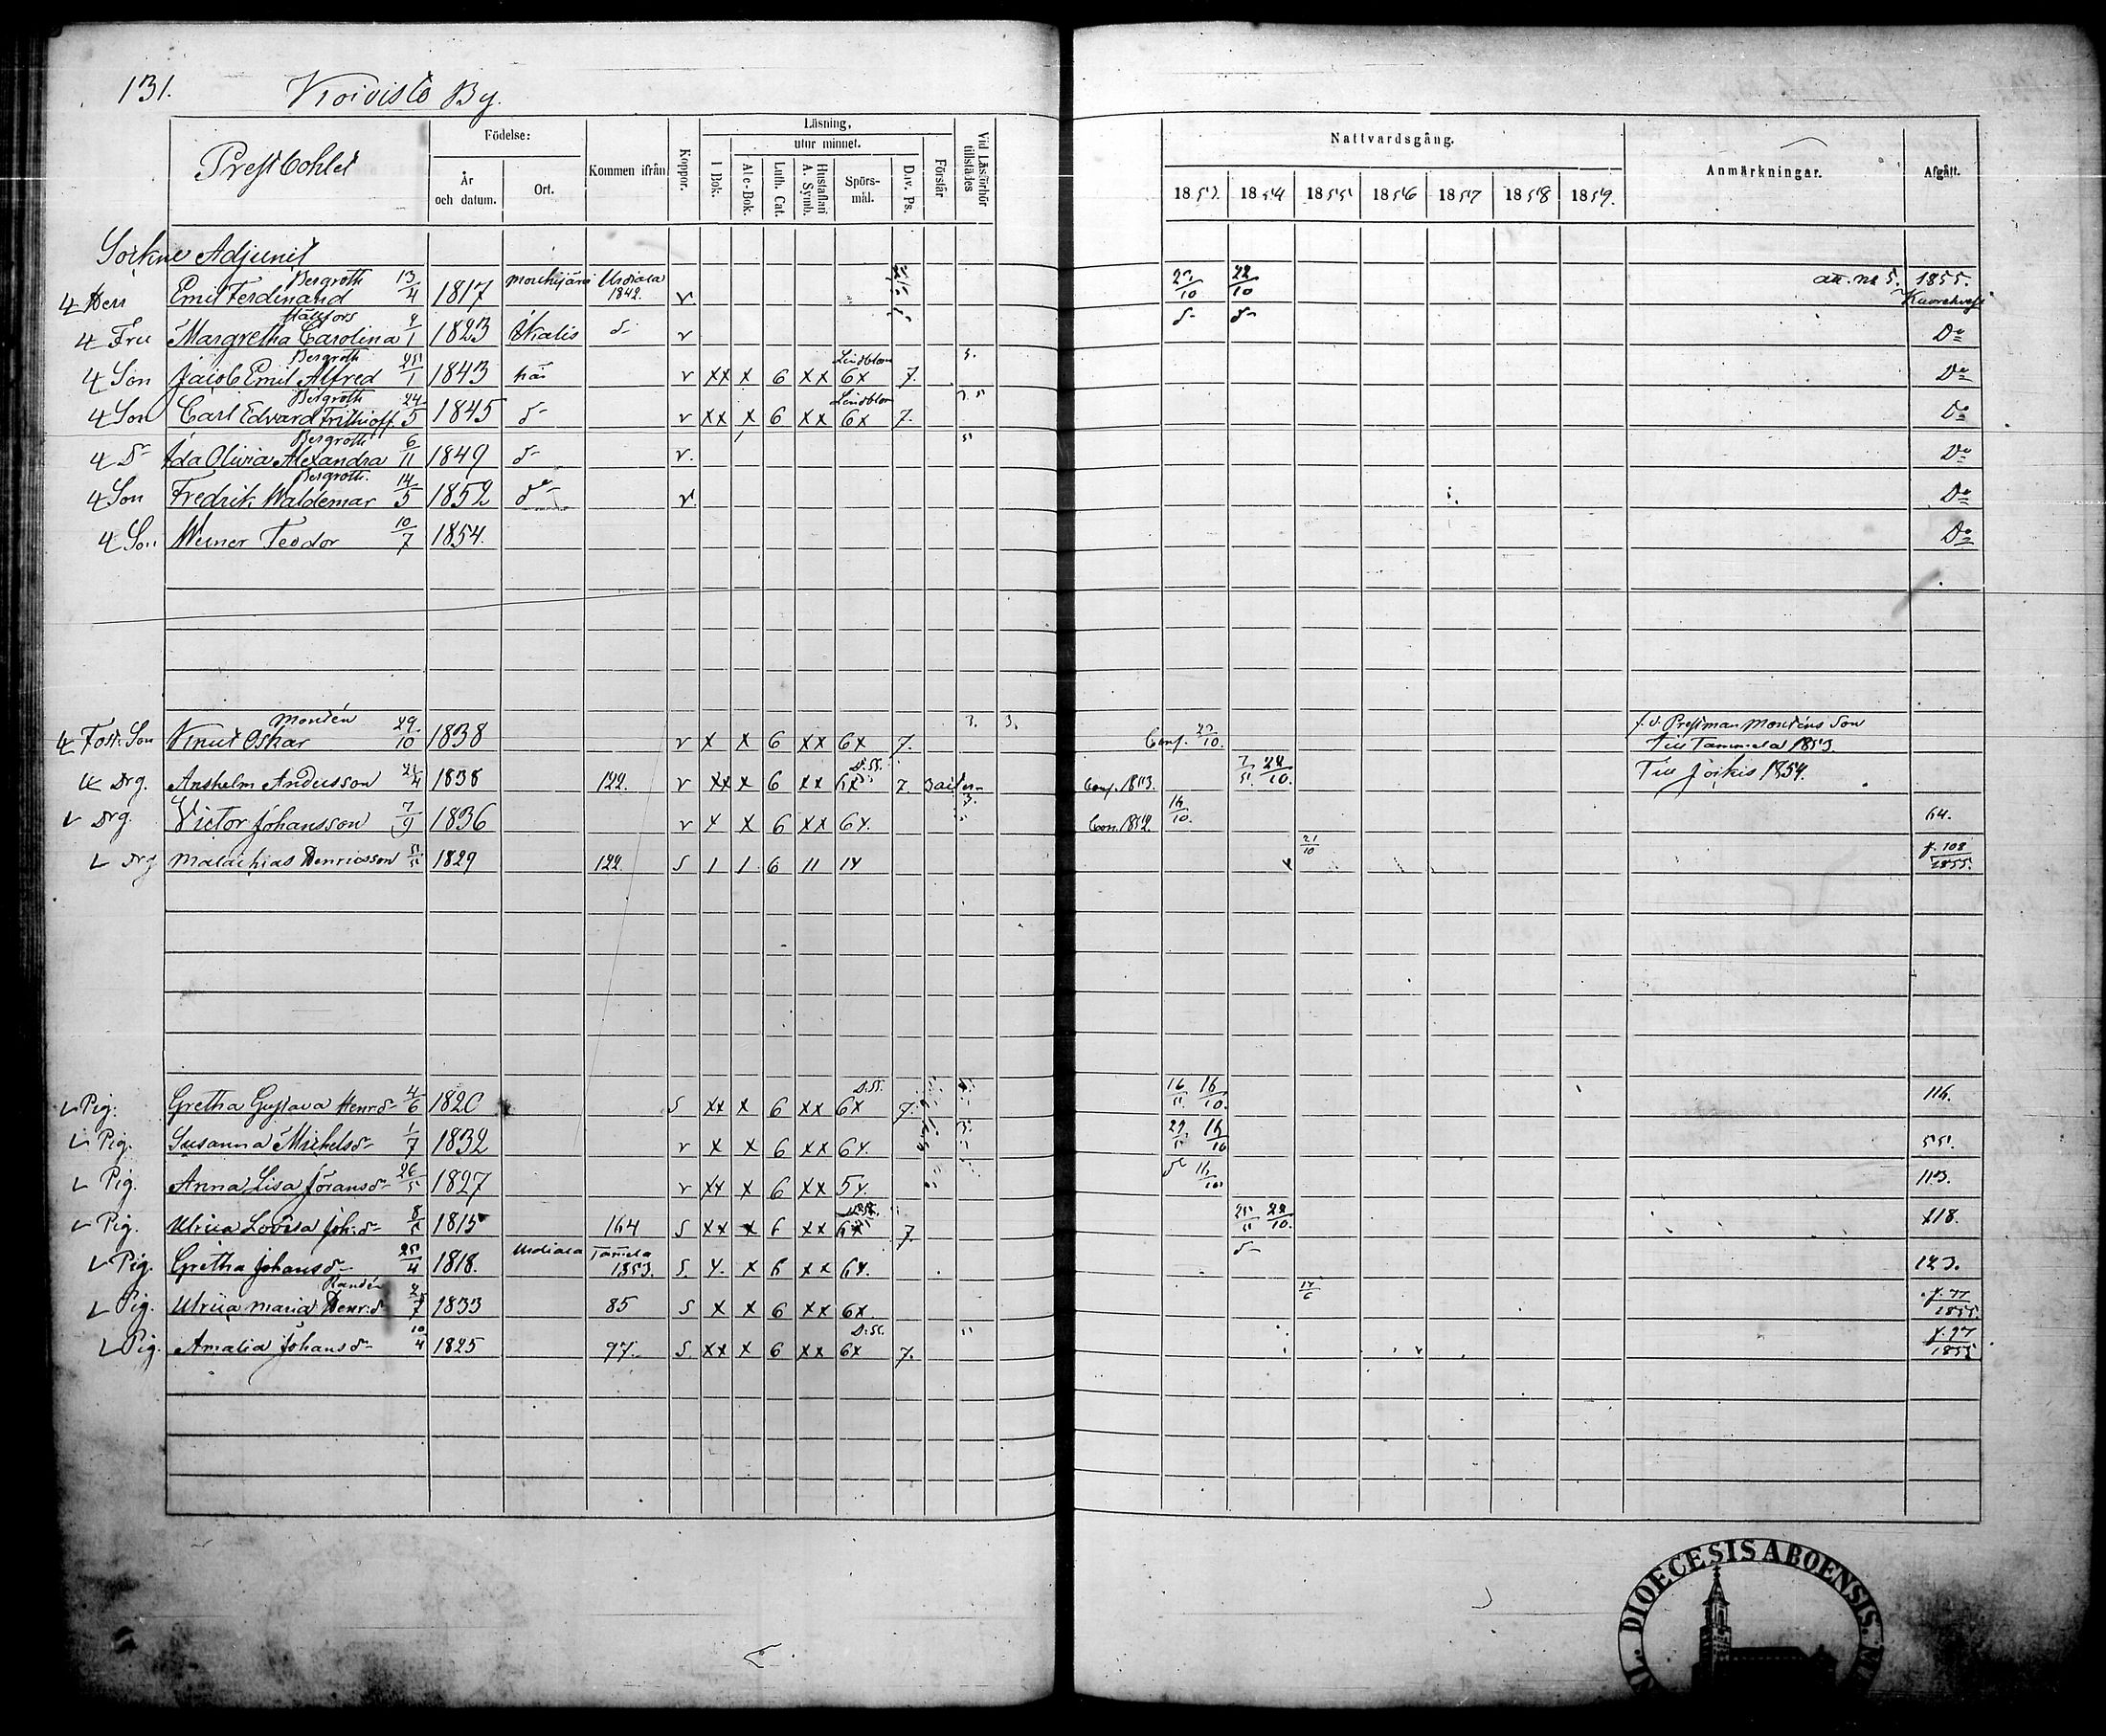 131. Koivisto By.
Prestbohlet
Födelse:
År och datum.
Ort.
Kommen ifrån
Koppor.
Läsning,
I Bok.
utur minnet.
Abc-Bok.
Luth. Cat.
Hustaflan A. Symb.
Spörsmål.
Dav. Ps.
Förstår
Vid Läsförhör tillstädes
Nattvardsgång.
1853. 1854 1855 1856 1857 1858 1859.
Anmärkningar.
Afgått.
Sockne Adjunct
Herr Emil Ferdinand Bergroth 13/4 1817 Mouhijärvi Urdiala 1842. v 23/10 22/10 att. No 5. 1855.
4 Fru Margretha Carolina Hällfors 1823 Ikalis d- v d- d- Do
4 Son Jacob Emil Alfred Bergroth 25/1 1843 här v xx x 6 xx Lindblom 6x 7. Do
4 Son Carl Edvard Frithioff Bergroth 24/5 1845 d- v xx x 6 xx Lindblom 6x 7. Do
4 Dr Ida Olivia Alexandra Bergroth 6/11 1849 d- v. Do
4 Son Fredrik Waldemar Bergroth. 14/5 1852 do v Do
4 Son Werner Teodor 10/7 1854. Do
4 Fost. Son Knut Oskar Montén 29/10 1838 v x x 6 xx 6x 7. 3. 3. Conf. 23/10. f.d. Prestman Monténs Son
Till Tammela 1853.
Drg. Anshelm Andersson 1838 122. v xx x 6 xx 6x 7 Conf. 1853. 22/10. Till Jockis 1854.
Drg. Victor Johansson 7/9 1836 v x x 6 xx 6x. Con. 1852. 16/10. 64.
Drg Malachias Henricsson 1829 122. s 1 1 6 11 1x 21/10 f. 108 1855.
Pig. Gretha Gustava Henr.d- 4/6 1820 s xx x 6 xx D:ss. 6x 7. 16/10. 116.
Pig. Susanna Michelsd- 1/7 1832 v x x 6 xx 6x. 16/10 55.
Pig. Anna Lisa Jöransd- 26/5 1827 v xx x 6 xx 5x. 16/10 113.
Pig. Ulrica Lovisa Joh:d- 1815 164 s xx x 6 xx 6x 7. 22/10. 118.
Pig. Gretha Johansd- 25/4 1818. Urdiala Tamela 1853. s. x. x 6 xx 6x. d- 123.
Pig. Ulrica Maria Henr:d- Randén 1833 85 s x x 6 xx 6x 17/6 f. 77 1855.
Pig. Amalia Johansd- 10/4 1825 97. s. xx x 6 xx D:ss. 6x 7. f. 97 1855
DIOECESIS ABOENSIS